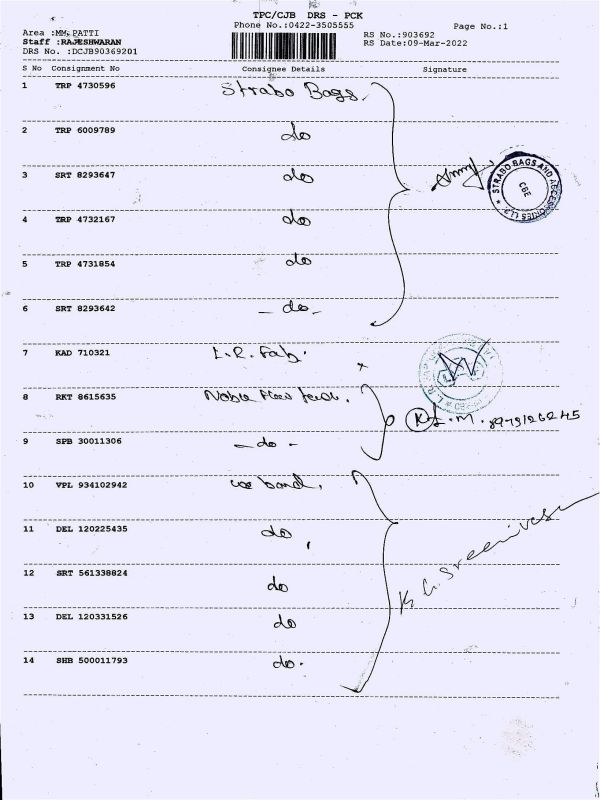 TPC/CJB DRS - PCK
Phone No.:0422-3505555
Page No.:1
Area :MM.PATTI
RS No.:903692
Staff :RAJESHWARAN
RS Date:09-Mar-2022
DRS No. :DCJB90369201
S No Consignment No Consignee Details Signature
1 TRP 4730596 Strabo Bags.
2 TRP 6009789 do
3 SRT 8293647 do
STRABO BAGS AND ACCESSORIES LLP
CBE
4 TRP 4732167 do
5 TRP 4731854 do
6 SRT 8293642 - do -
7 KAD 710321 L.R. Fab.
8 RKT 8615635 Noble
9 SPB 30011306 - do -
10 VPL 934102942 we band.
11 DEL 120225435 do
12 SRT 561338824 do
K. G. Sreenivas
13 DEL 120331526 do
14 SHB 500011793 do.